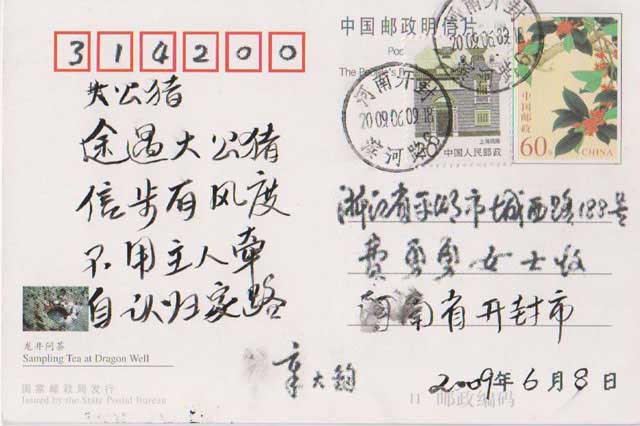 314200
大公猪
途遇大公猪
信步有风度
不用主人牵
自认归家路
章大钧
龙井问茶
Sampling Tea at Dragon Well
国家邮政局发行
Issued by the State Postal Bureau
中国邮政明信片
Pos
The People's
河南开封
2009.06.09.18
河南开封
2009.06.09.18
上海民居
8
中国人民邮政
中国邮政
60分
CHINA
浙江省平湖市城西路188号
费 女士收
河南省开封市
2009年6月8日
邮政编码